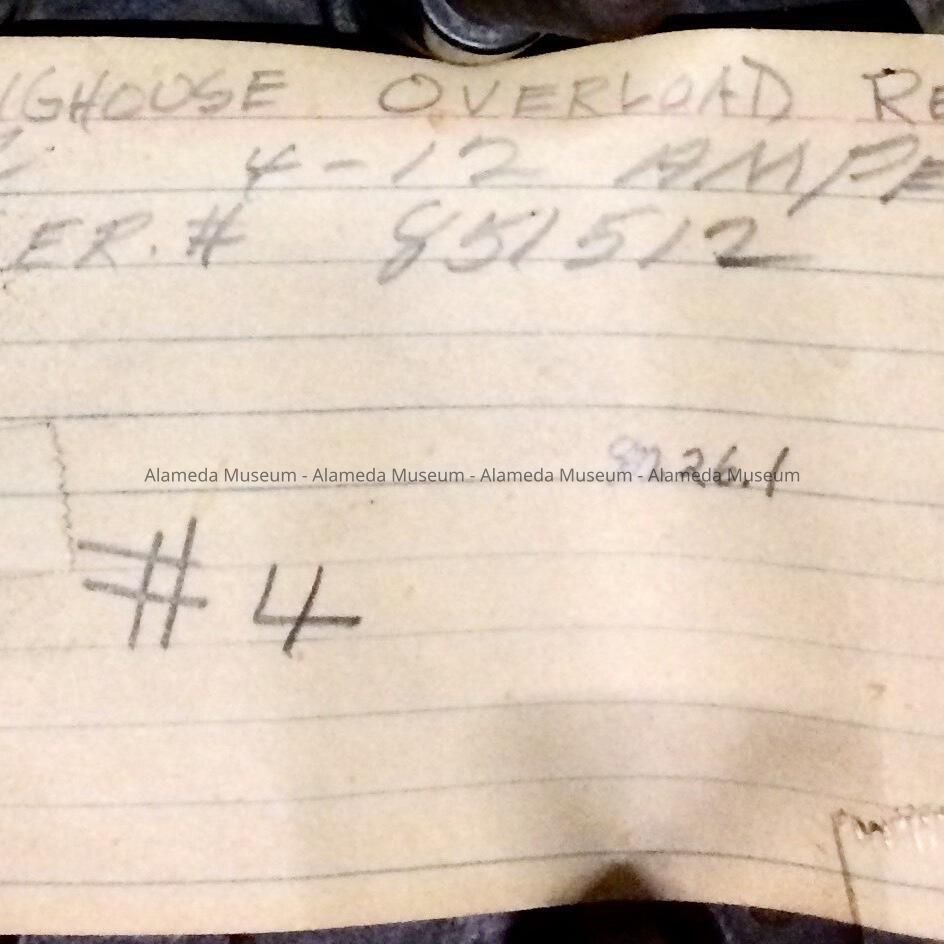 NGHOUSE OVERLOAD RE
4-12 AMPE
ER. # 851512
26.1
Alameda Museum - Alameda Museum - Alameda Museum - Alameda Museum
# 4